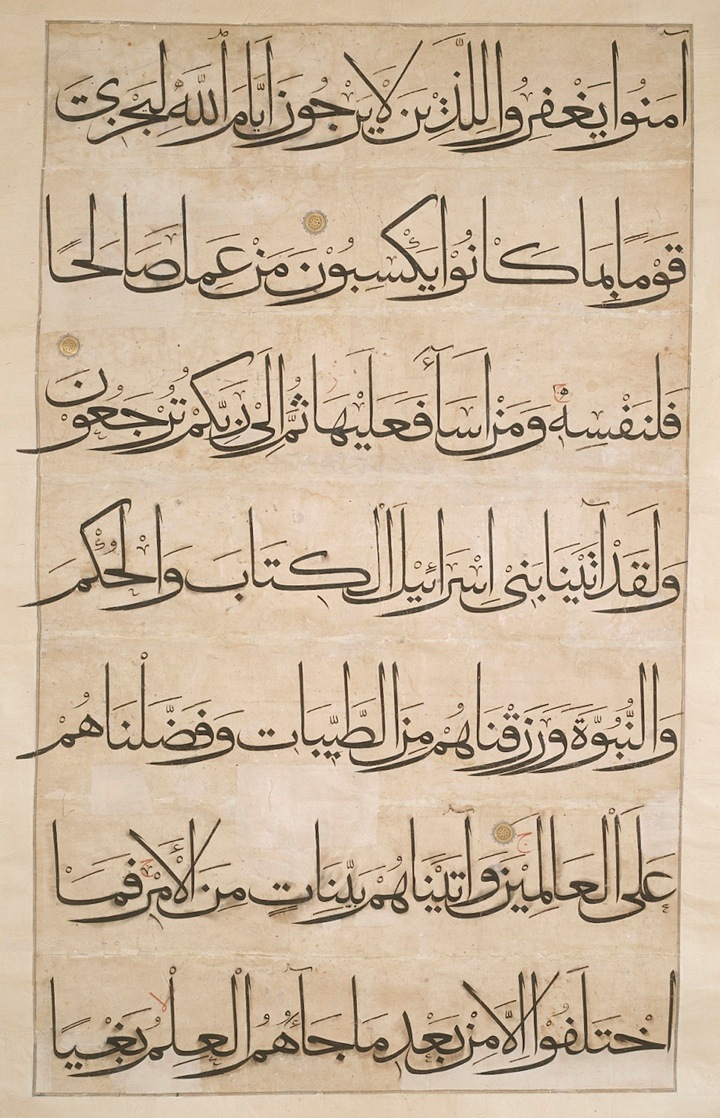 آمَنُوا يَغْفِرُوا لِلَّذِينَ لَا يَرْجُونَ أَيَّامَ اللَّهِ لِيَجْزِيَ
قَوْمًا بِمَا كَانُوا يَكْسِبُونَ مَنْ عَمِلَ صَالِحًا
فَلِنَفْسِهِ وَمَنْ اَسَآءَ فَعَلَيْهَا ثُمَّ اِلَى رَبِّكُمْ تُرْجَعُونَ
وَلَقَدْ آتَيْنَا بَنِي اِسْرَائِيلَ الْكِتَابَ وَالْحُكْمَ
وَالنُّبُوَّةَ وَرَزَقْنَاهُمْ مِنَ الطَّيِّبَاتِ وَفَضَّلْنَاهُمْ
عَلَى الْعَالَمِينَ وَآتَيْنَاهُمْ بَيِّنَاتٍ مِنَ الْأَمْرِ فَمَا
اخْتَلَفُوا اِلَّا مِنْ بَعْدِ مَا جَآءَهُمُ الْعِلْمُ بَغْيًا